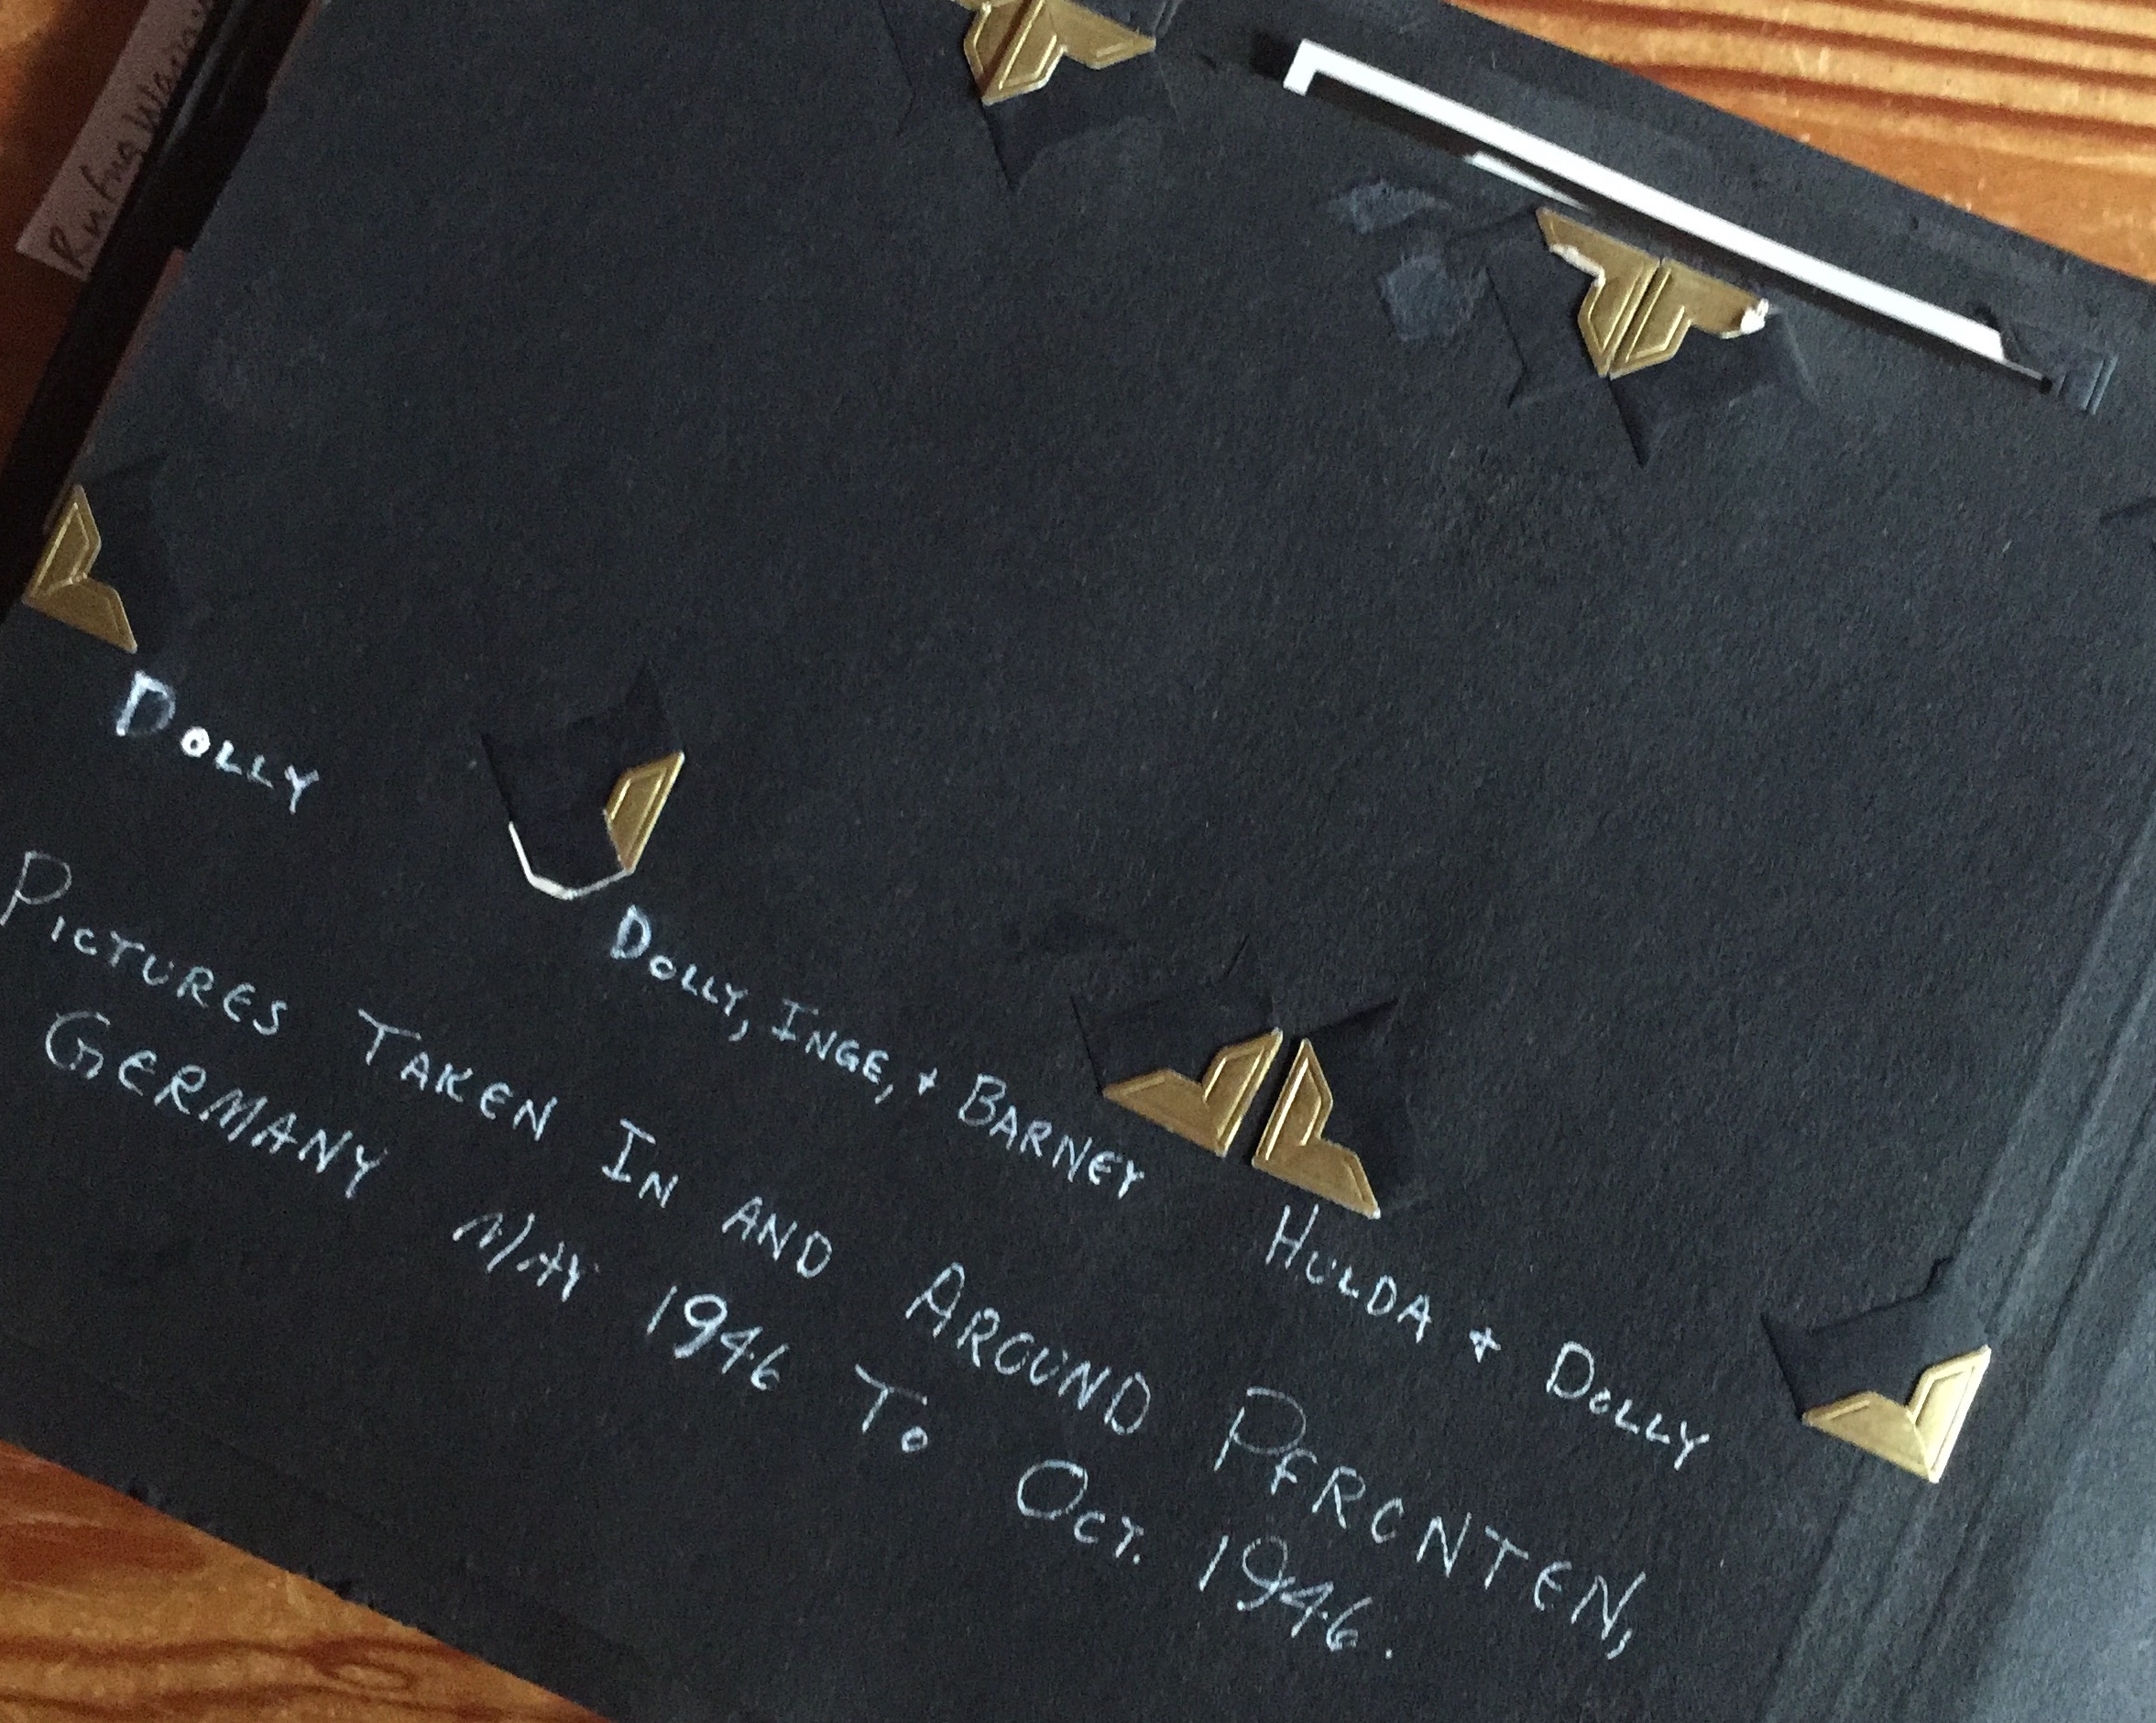 Dolly
Dolly, Inge, + Barney
Hulda + Dolly
Pictures Taken In and Around Pfronten,
Germany May 1946 To Oct. 1946.